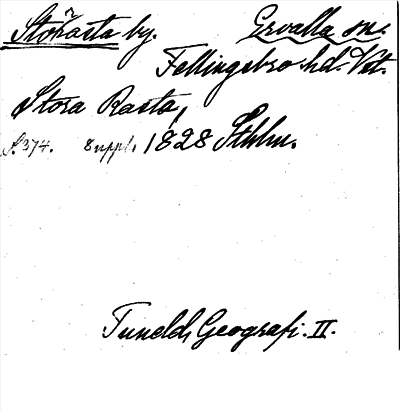 Storasta by. Ervalla sn.
Fellingsbro hd. Vst.
Stora Rasta,
S. 374. Suppl. 1828 Sthlm.
Tuneld, Geografi. II.